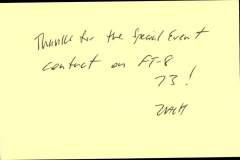 Thanks for the Special Event
contact on FT-8
73!
ZACH